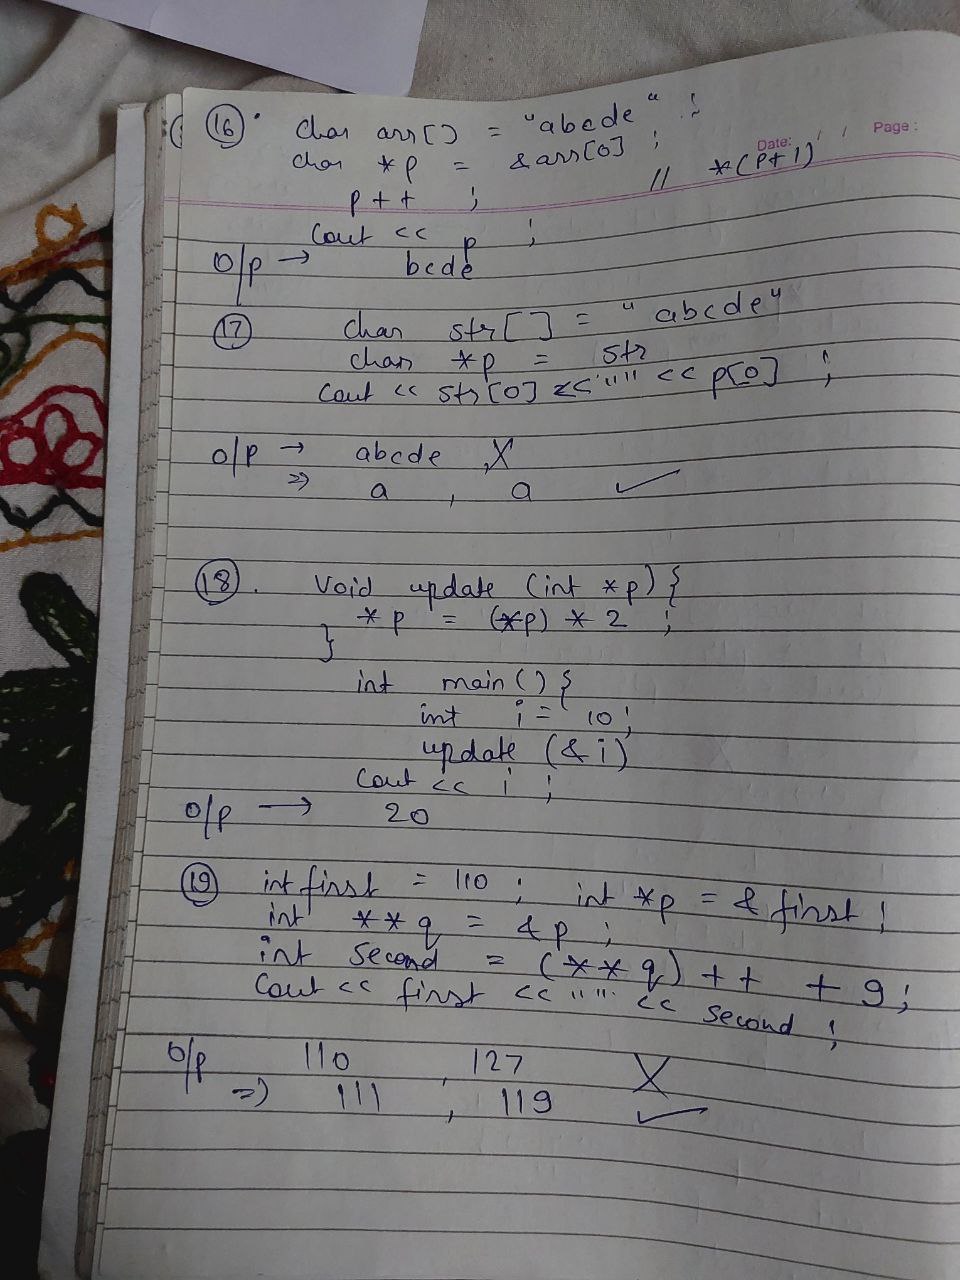 Date: / / Page:
(16) char arr[] = "abcde" ;
char *p = &arr[0] ;
p++ ; // *(p+1)
cout << p ;
o/p → bcde
(17) char str[] = "abcde"
char *p = str
cout << str[0] << " " << p[0] ;
o/p → abcde X
⇒ a , a ✓
(18). void update (int *p) {
*p = (*p) * 2 ;
}
int main() {
int i = 10;
update (&i)
cout << i ;
o/p → 20
(19) int first = 110 ; int *p = & first ;
int **q = &p ;
int second = (**q)++ + 9;
cout << first << " " << second ;
o/p 110 , 127 X
⇒ 111 , 119 ✓